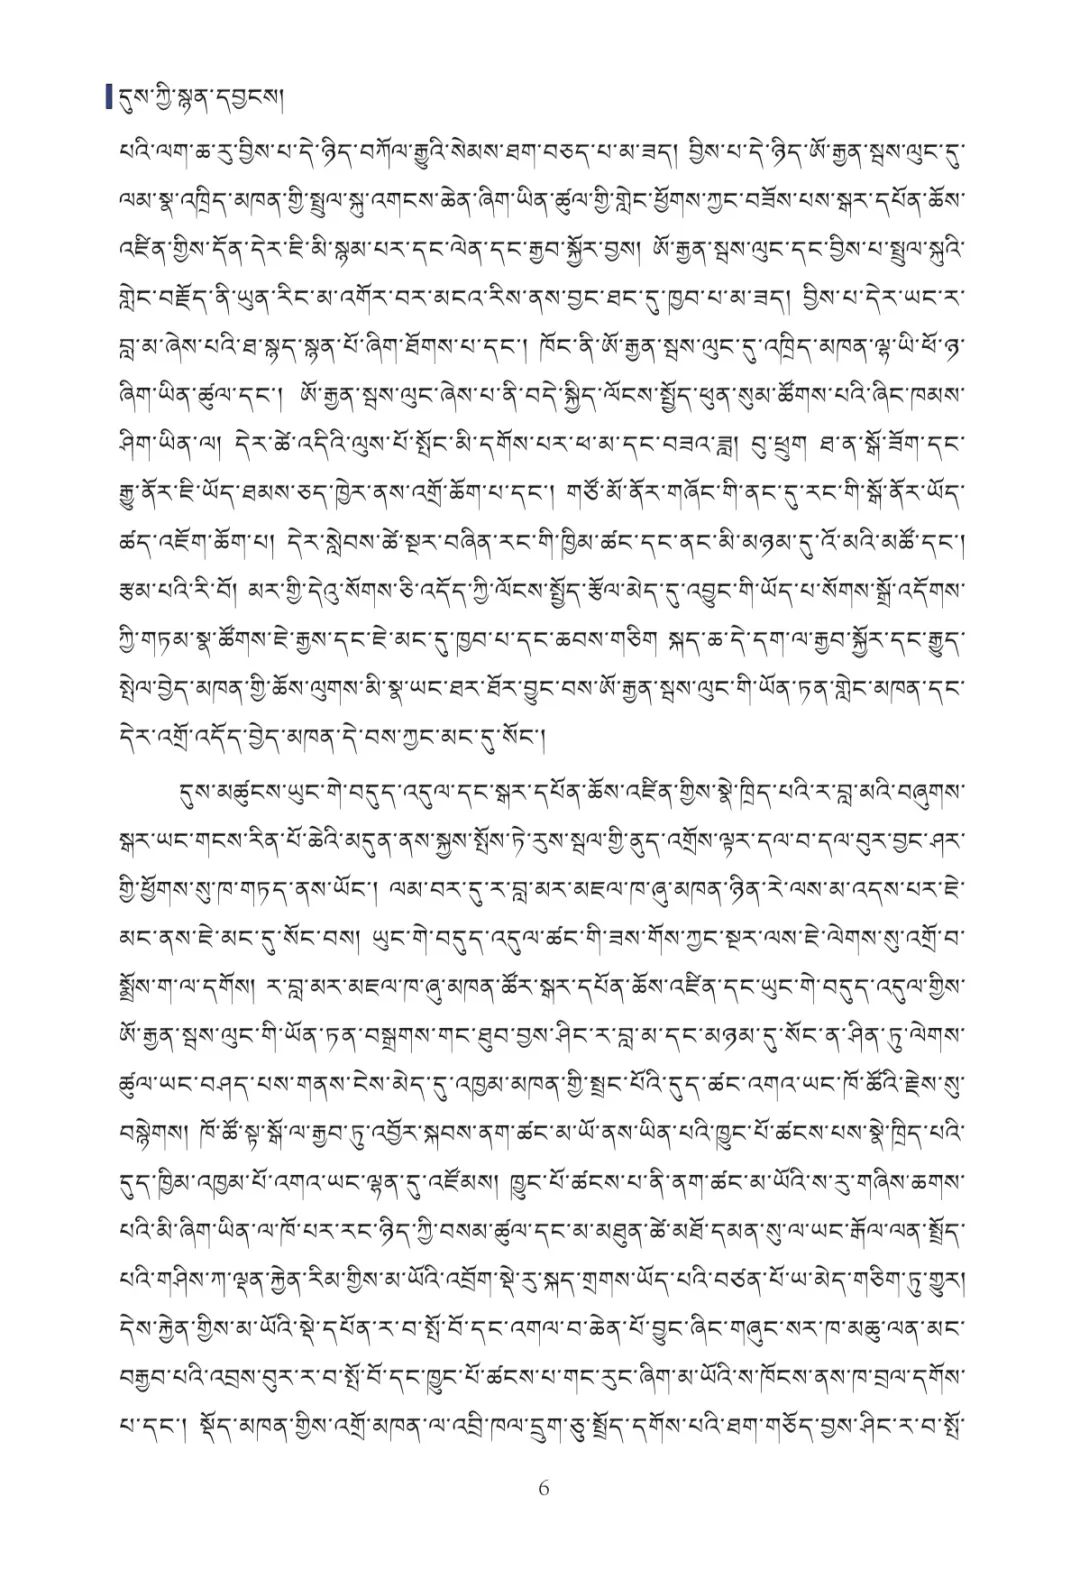 དུས་ཀྱི་སྙན་དབྱངས།
པའི་ལག་ཆ་རུ་བྱིས་པ་དེ་ཉིད་བཀོལ་རྒྱུའི་སེམས་ཐག་བཅད་པ་མ་ཟད། བྱིས་པ་དེ་ཉིད་ཨོ་རྒྱན་སྦས་ལུང་དུ་
ལམ་སྣ་འཁྲིད་མཁན་གྱི་སྤྲུལ་སྐུ་འགངས་ཆེན་ཞིག་ཡིན་ཚུལ་གྱི་གླེང་ཕྱོགས་ཀྱང་བཟོས་པས་སྒར་དཔོན་ཆོས་
འཛིན་གྱིས་དོན་དེར་ཇི་མི་སྙམ་པར་དང་ལེན་དང་རྒྱབ་སྐྱོར་བྱས། ཨོ་རྒྱན་སྦས་ལུང་དང་བྱིས་པ་སྤྲུལ་སྐུའི་
གླེང་བརྗོད་ནི་ཡུན་རིང་མ་འགོར་བར་མངའ་རིས་ནས་བྱང་ཐང་དུ་ཁྱབ་པ་མ་ཟད། བྱིས་པ་དེར་ཡང་ར་
བླ་མ་ཞེས་པའི་ཐ་སྙད་སྙན་པོ་ཞིག་ཐོགས་པ་དང་། ཁོང་ནི་ཨོ་རྒྱན་སྦས་ལུང་དུ་འཁྲིད་མཁན་ལྷ་ཡི་ཕོ་ཉ་
ཞིག་ཡིན་ཚུལ་དང་། ཨོ་རྒྱན་སྦས་ལུང་ཞེས་པ་ནི་བདེ་སྐྱིད་ལོངས་སྤྱོད་ཕུན་སུམ་ཚོགས་པའི་ཞིང་ཁམས་
ཤིག་ཡིན་ལ། དེར་ཚེ་འདིའི་ལུས་པོ་སྤོང་མི་དགོས་པར་ཕ་མ་དང་བཟའ་ཟླ། བུ་ཕྲུག ཐ་ན་སྒོ་ཟོག་དང་
རྒྱུ་ནོར་ཇི་ཡོད་ཐམས་ཅད་ཁྱེར་ནས་འགྲོ་ཆོག་པ་དང་། གཙོ་མོ་ནོར་གཞོང་གི་ནང་དུ་རང་གི་སྒོ་ནོར་ཡོད་
ཚད་འཇོག་ཆོག་པ། དེར་སླེབས་ཚེ་སྔར་བཞིན་རང་གི་ཁྱིམ་ཚང་དང་ནང་མི་མཉམ་དུ་འོ་མའི་མཚོ་དང་།
རྩམ་པའི་རི་བོ། མར་གྱི་དེའུ་སོགས་ཅི་འདོད་ཀྱི་ལོངས་སྤྱོད་རྩོལ་མེད་དུ་འབྱུང་གི་ཡོད་པ་སོགས་སྒྲོ་འདོགས་
ཀྱི་གཏམ་སྣ་ཚོགས་ཇེ་རྒྱས་དང་ཇེ་མང་དུ་ཁྱབ་པ་དང་ཆབས་གཅིག སྐད་ཆ་དེ་དག་ལ་རྒྱབ་སྐྱོར་དང་རྒྱུད་
སྤེལ་བྱེད་མཁན་གྱི་ཆོས་ལུགས་མི་སྣ་ཡང་ཐར་ཐོར་བྱུང་བས་ཨོ་རྒྱན་སྦས་ལུང་གི་ཡོན་ཏན་གླེང་མཁན་དང་
དེར་འགྲོ་འདོད་བྱེད་མཁན་དེ་བས་ཀྱང་མང་དུ་སོང་།
དུས་མཚུངས་ཡུང་གེ་བདུད་འདུལ་དང་སྒར་དཔོན་ཆོས་འཛིན་གྱིས་སྣེ་ཁྲིད་པའི་ར་བླ་མའི་བཞུགས་
སྒར་ཡང་གངས་རིན་པོ་ཆེའི་མདུན་ནས་སྐྱས་སྤོས་ཏེ་རུས་སྦལ་གྱི་ནུད་འགྲོས་ལྟར་དལ་བ་དལ་བུར་བྱང་ཤར་
གྱི་ཕྱོགས་སུ་ཁ་གཏད་ནས་ཡོང་། ལམ་བར་དུ་ར་བླ་མར་མཇལ་ཁ་ཞུ་མཁན་ཉིན་རེ་ལས་མ་འདས་པར་ཇེ་
མང་ནས་ཇེ་མང་དུ་སོང་བས། ཡུང་གེ་བདུད་འདུལ་ཚང་གི་ཟས་གོས་ཀྱང་སྔར་ལས་ཇེ་ལེགས་སུ་འགྲོ་བ་
སྨྲོས་ག་ལ་དགོས། ར་བླ་མར་མཇལ་ཁ་ཞུ་མཁན་ཚོར་སྒར་དཔོན་ཆོས་འཛིན་དང་ཡུང་གེ་བདུད་འདུལ་གྱིས་
ཨོ་རྒྱན་སྦས་ལུང་གི་ཡོན་ཏན་བསྒྲགས་གང་ཐུབ་བྱས་ཤིང་ར་བླ་མ་དང་མཉམ་དུ་སོང་ན་ཤིན་ཏུ་ལེགས་
ཚུལ་ཡང་བཤད་པས་གནས་ངེས་མེད་དུ་འཁྱམ་མཁན་གྱི་སྤྲང་པོའི་དུད་ཚང་འགའ་ཡང་ཁོ་ཚོའི་རྗེས་སུ་
བསྙེགས། ཁོ་ཚོ་སྟ་སྒོ་ལ་རྒྱབ་ཏུ་འབྱོར་སྐབས་ནག་ཚང་མ་ཡོ་ནས་ཡིན་པའི་ཁྱུང་པོ་ཚངས་པས་སྣེ་ཁྲིད་པའི་
དུད་ཁྱིམ་འཁྱམ་པོ་འགའ་ཡང་ལྷན་དུ་འཛོམས། ཁྱུང་པོ་ཚངས་པ་ནི་ནག་ཚང་མ་ཡོའི་ས་རུ་གཞིས་ཆགས་
པའི་མི་ཞིག་ཡིན་ལ་ཁོ་པར་རང་ཉིད་ཀྱི་བསམ་ཚུལ་དང་མ་མཐུན་ཚེ་མཐོ་དམན་སུ་ལ་ཡང་རྒོལ་ལན་སྤྲོད་
པའི་གཤིས་ཀ་ལྡན་རྐྱེན་རིམ་གྱིས་མ་ཡོའི་འབྲོག་སྡེ་རུ་སྐད་གྲགས་ཡོད་པའི་བཙན་པོ་ཡ་མེད་གཅིག་ཏུ་གྱུར།
དེས་རྐྱེན་གྱིས་མ་ཡོའི་སྡེ་དཔོན་ར་བ་སྤོ་བོ་དང་འགལ་བ་ཆེན་པོ་བྱུང་ཞིང་གཞུང་སར་ཁ་མཆུ་ལན་མང་
བརྒྱབ་པའི་འབྲས་བུར་ར་བ་སྤོ་བོ་དང་ཁྱུང་པོ་ཚངས་པ་གང་རུང་ཞིག་མ་ཡོའི་ས་ཁོངས་ནས་ཁ་བྲལ་དགོས་
པ་དང་། སྡོད་མཁན་གྱིས་འགྲོ་མཁན་ལ་འབྲི་ཁལ་དྲུག་ཅུ་སྤྲོད་དགོས་པའི་ཐག་གཅོད་བྱས་ཤིང་ར་བ་སྤོ་
6